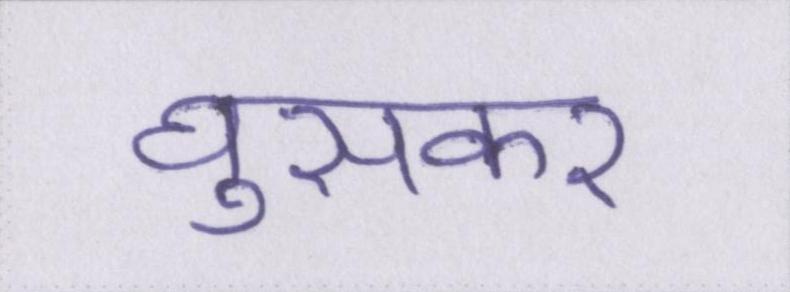 घुसकर